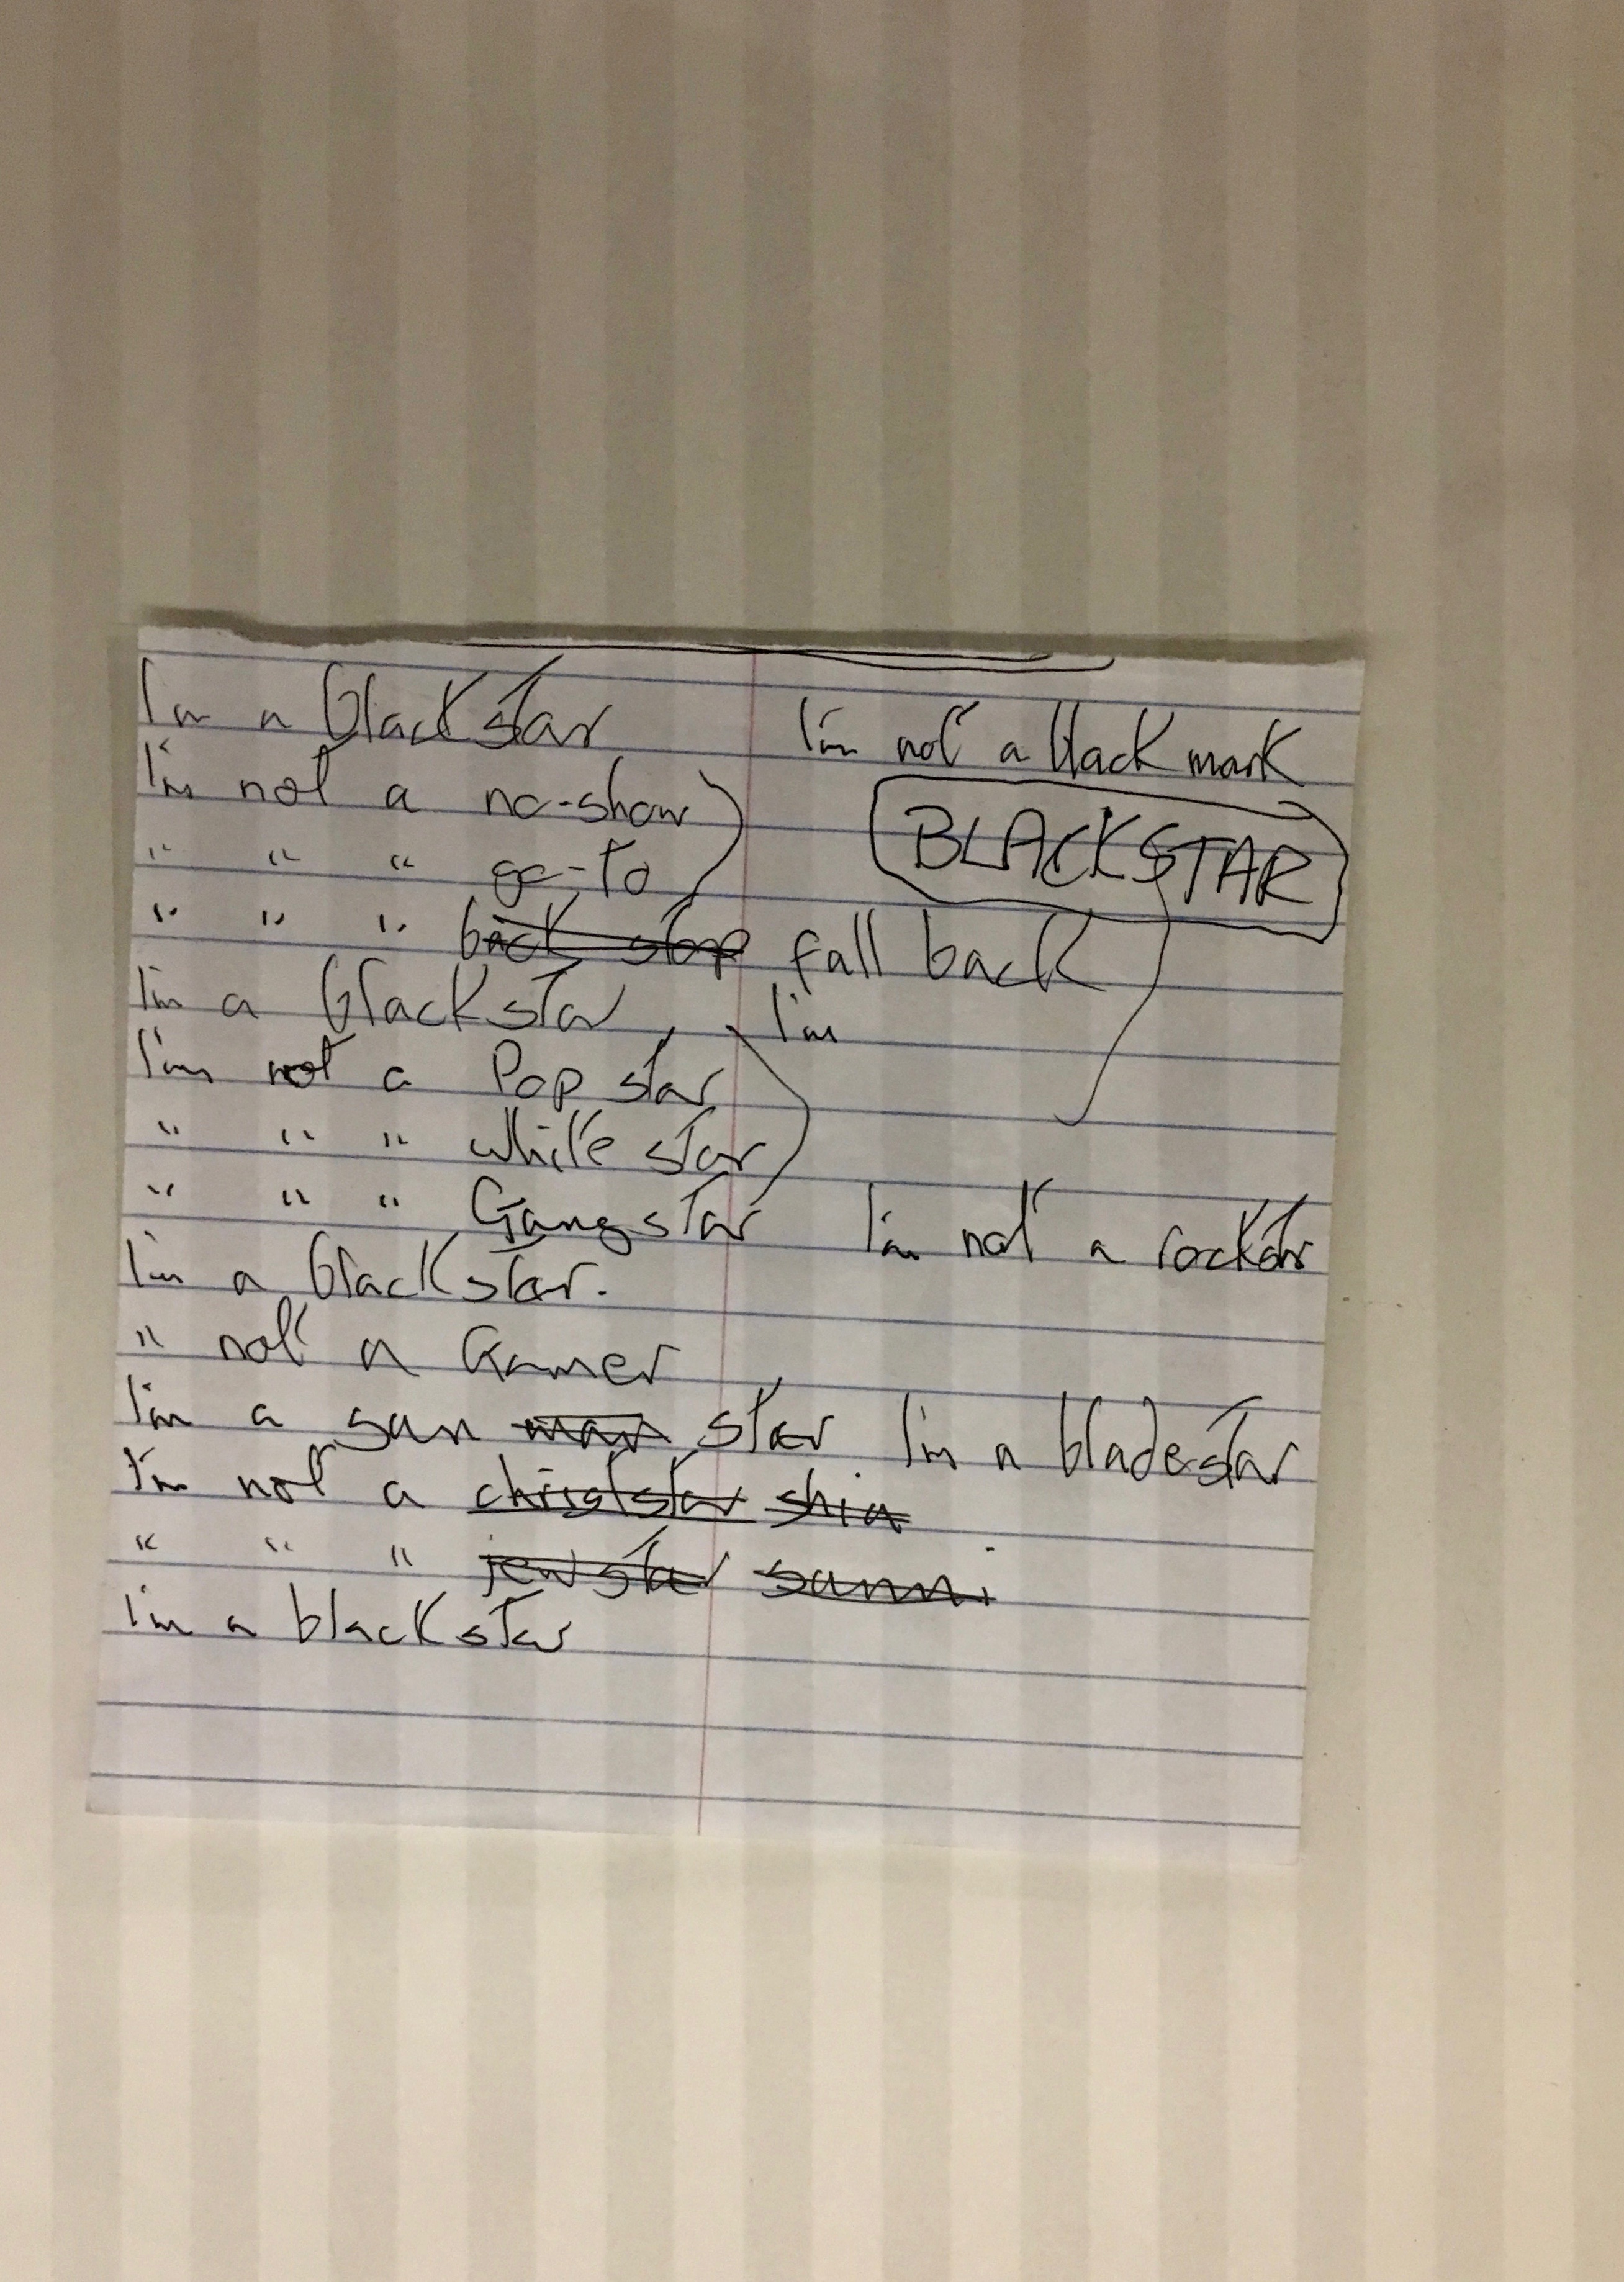 I'm a blackstar I'm not a black mark
I'm not a no-show
" " " go-to
BLACKSTAR
" " " back stop fall back
I'm a blackstar, I'm
I'm not a Pop star
" " " white star
" " " Gangstar I'm not a rockstar
I'm a blackstar.
" not a Gamer
I'm a sun man star I'm a bladestar
I'm not a christstar shia
" " " jewstar sunni
I'm a blackstar